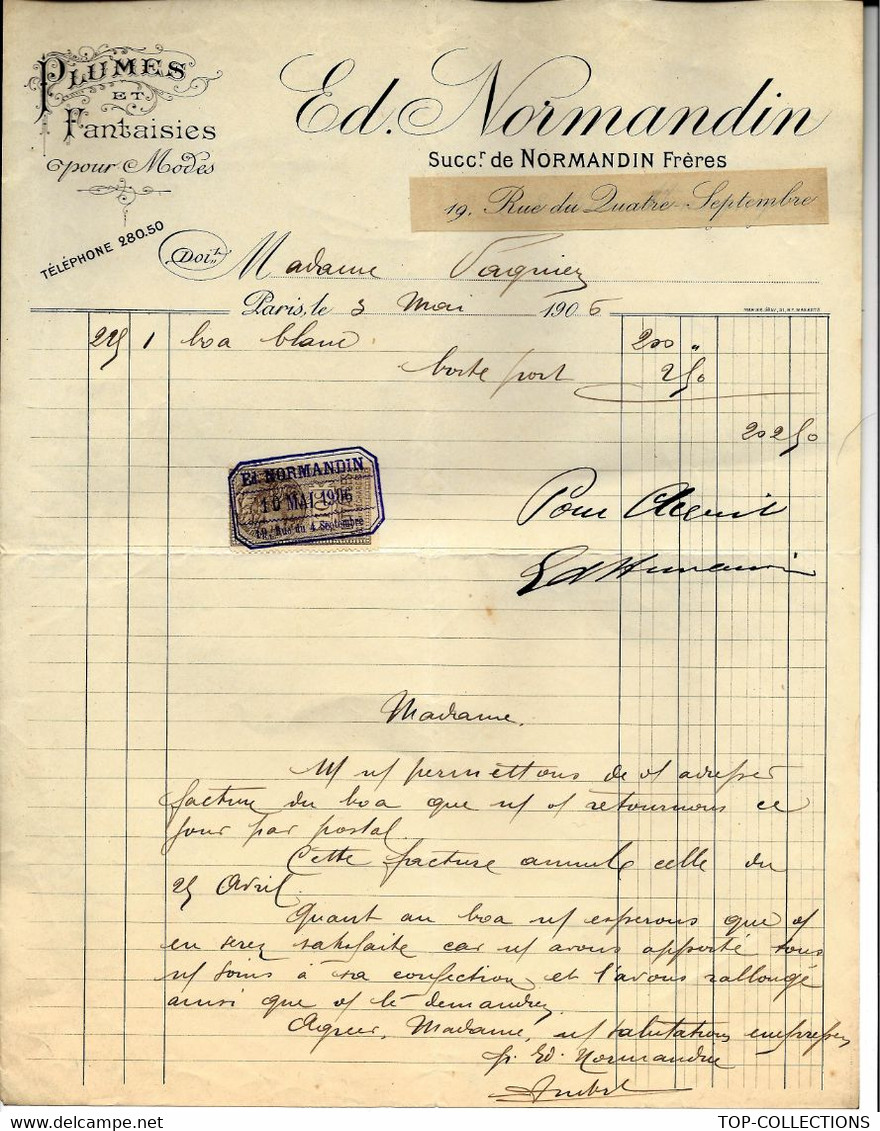 PLUMES
ET
Fantaisies
pour Modes
TÉLÉPHONE 280.50
Ed. Normandin
Succr de NORMANDIN Frères
19, Rue du Quatre-Septembre
Doit
Madame
Paris, le 3 Mai 1906
1 boa blanc 200 "
boite port 2 50
202 50
Ed. NORMANDIN
10 MAI 1906
19, Rue du 4 Septembre
Pour Acquit
Ed Normandin
Madame,
N/ n/ permettons de v/ adresser
facture du boa que n/ v/ retournons ce
jour par postal.
Cette facture annule celle du
25 Avril.
Quant au boa n/ esperons que v/
en serez satisfaite car n/ avons apporté tous
n/ soins à sa confection et l'avons rallongé
ainsi que v/ le demandez.
Agreer, Madame, n/ salutations empressées
p. Ed. Normandin
TOP-COLLECTIONS